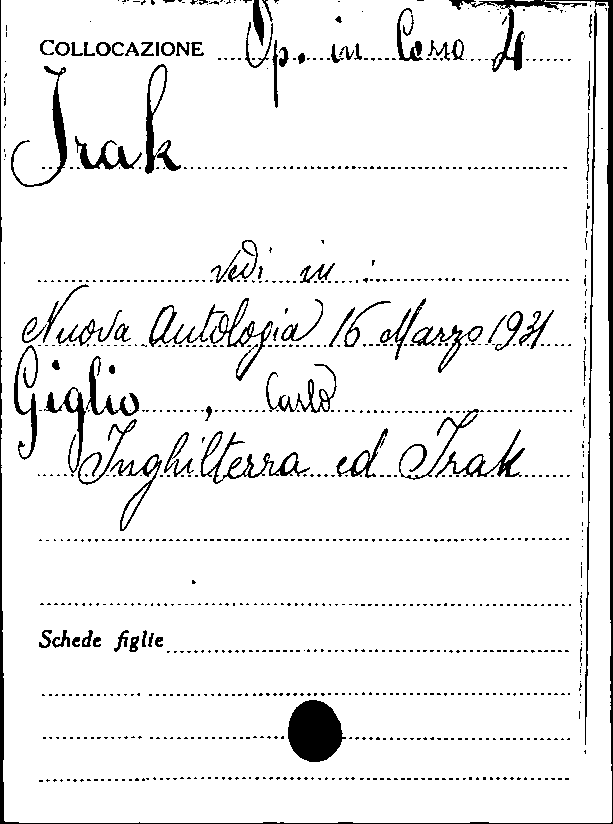 COLLOCAZIONE Op. in Corso 21
Irak
vedi in :
Nuova Antologia 16 Marzo 1931
Giglio, Carlo
Inghilterra ed Irak
Schede figlie